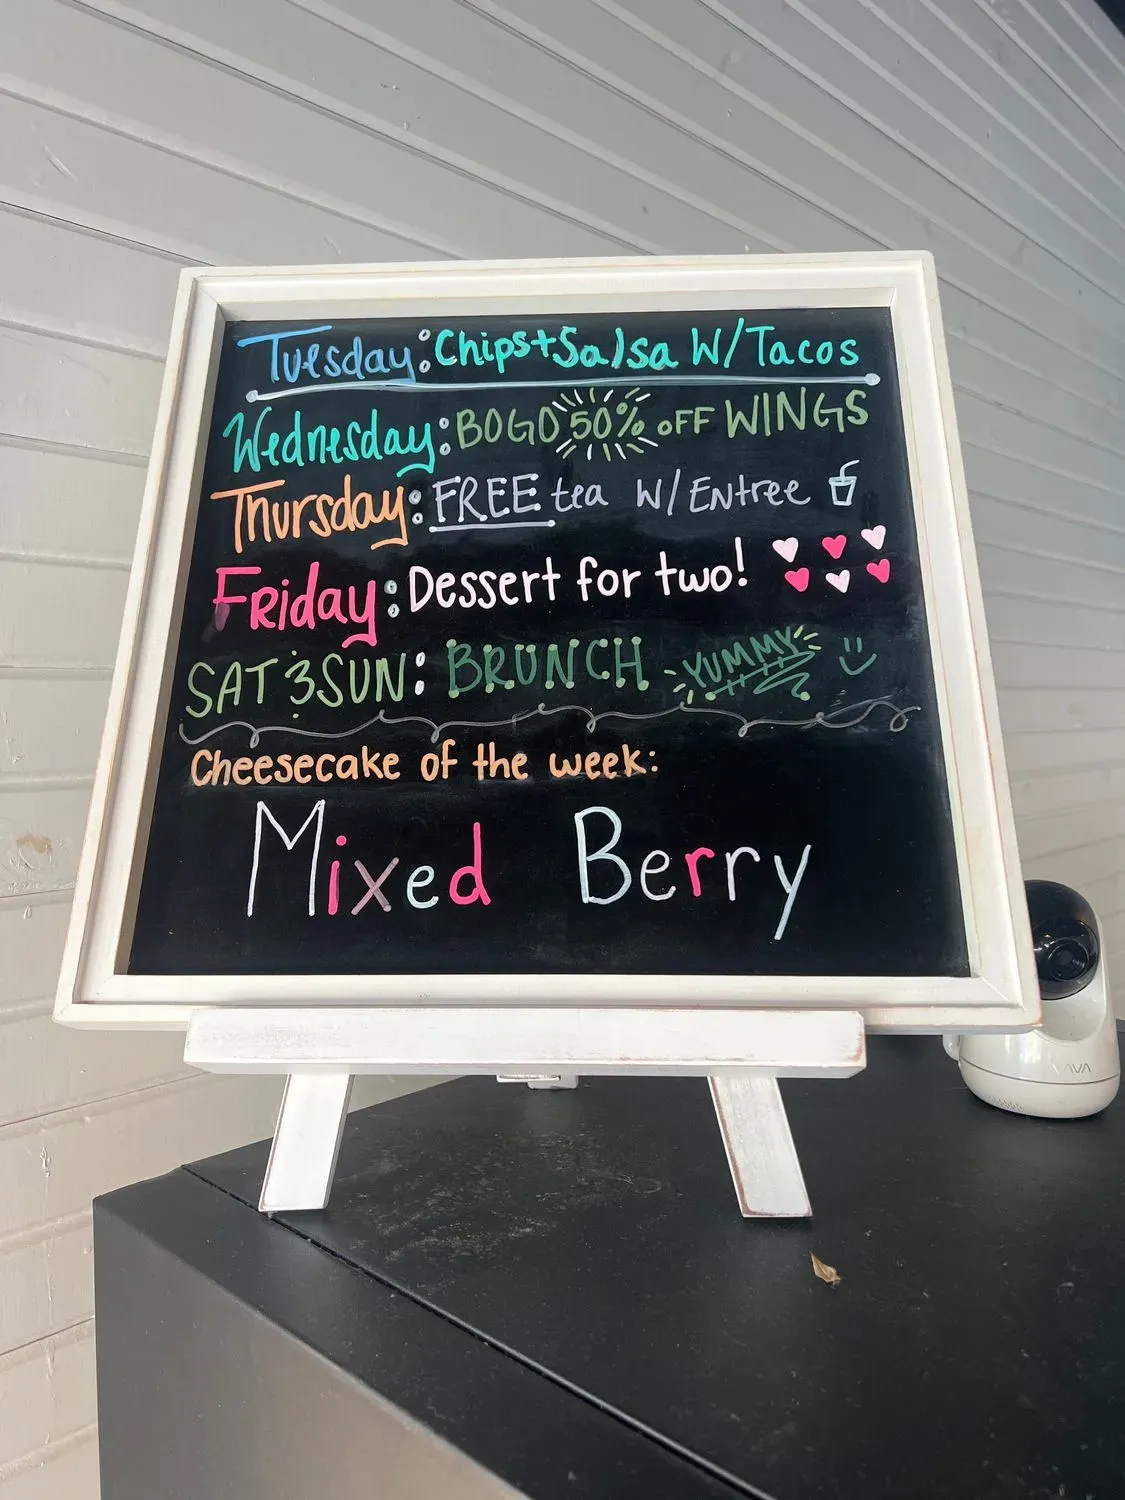 Tuesday: Chips+Salsa W/Tacos
Wednesday: BOGO 50% OFF WINGS
Thursday: FREE tea W/Entree
Friday: Dessert for two!
SAT & SUN: BRUNCH YUMMY
Cheesecake of the week:
Mixed Berry
VAVA